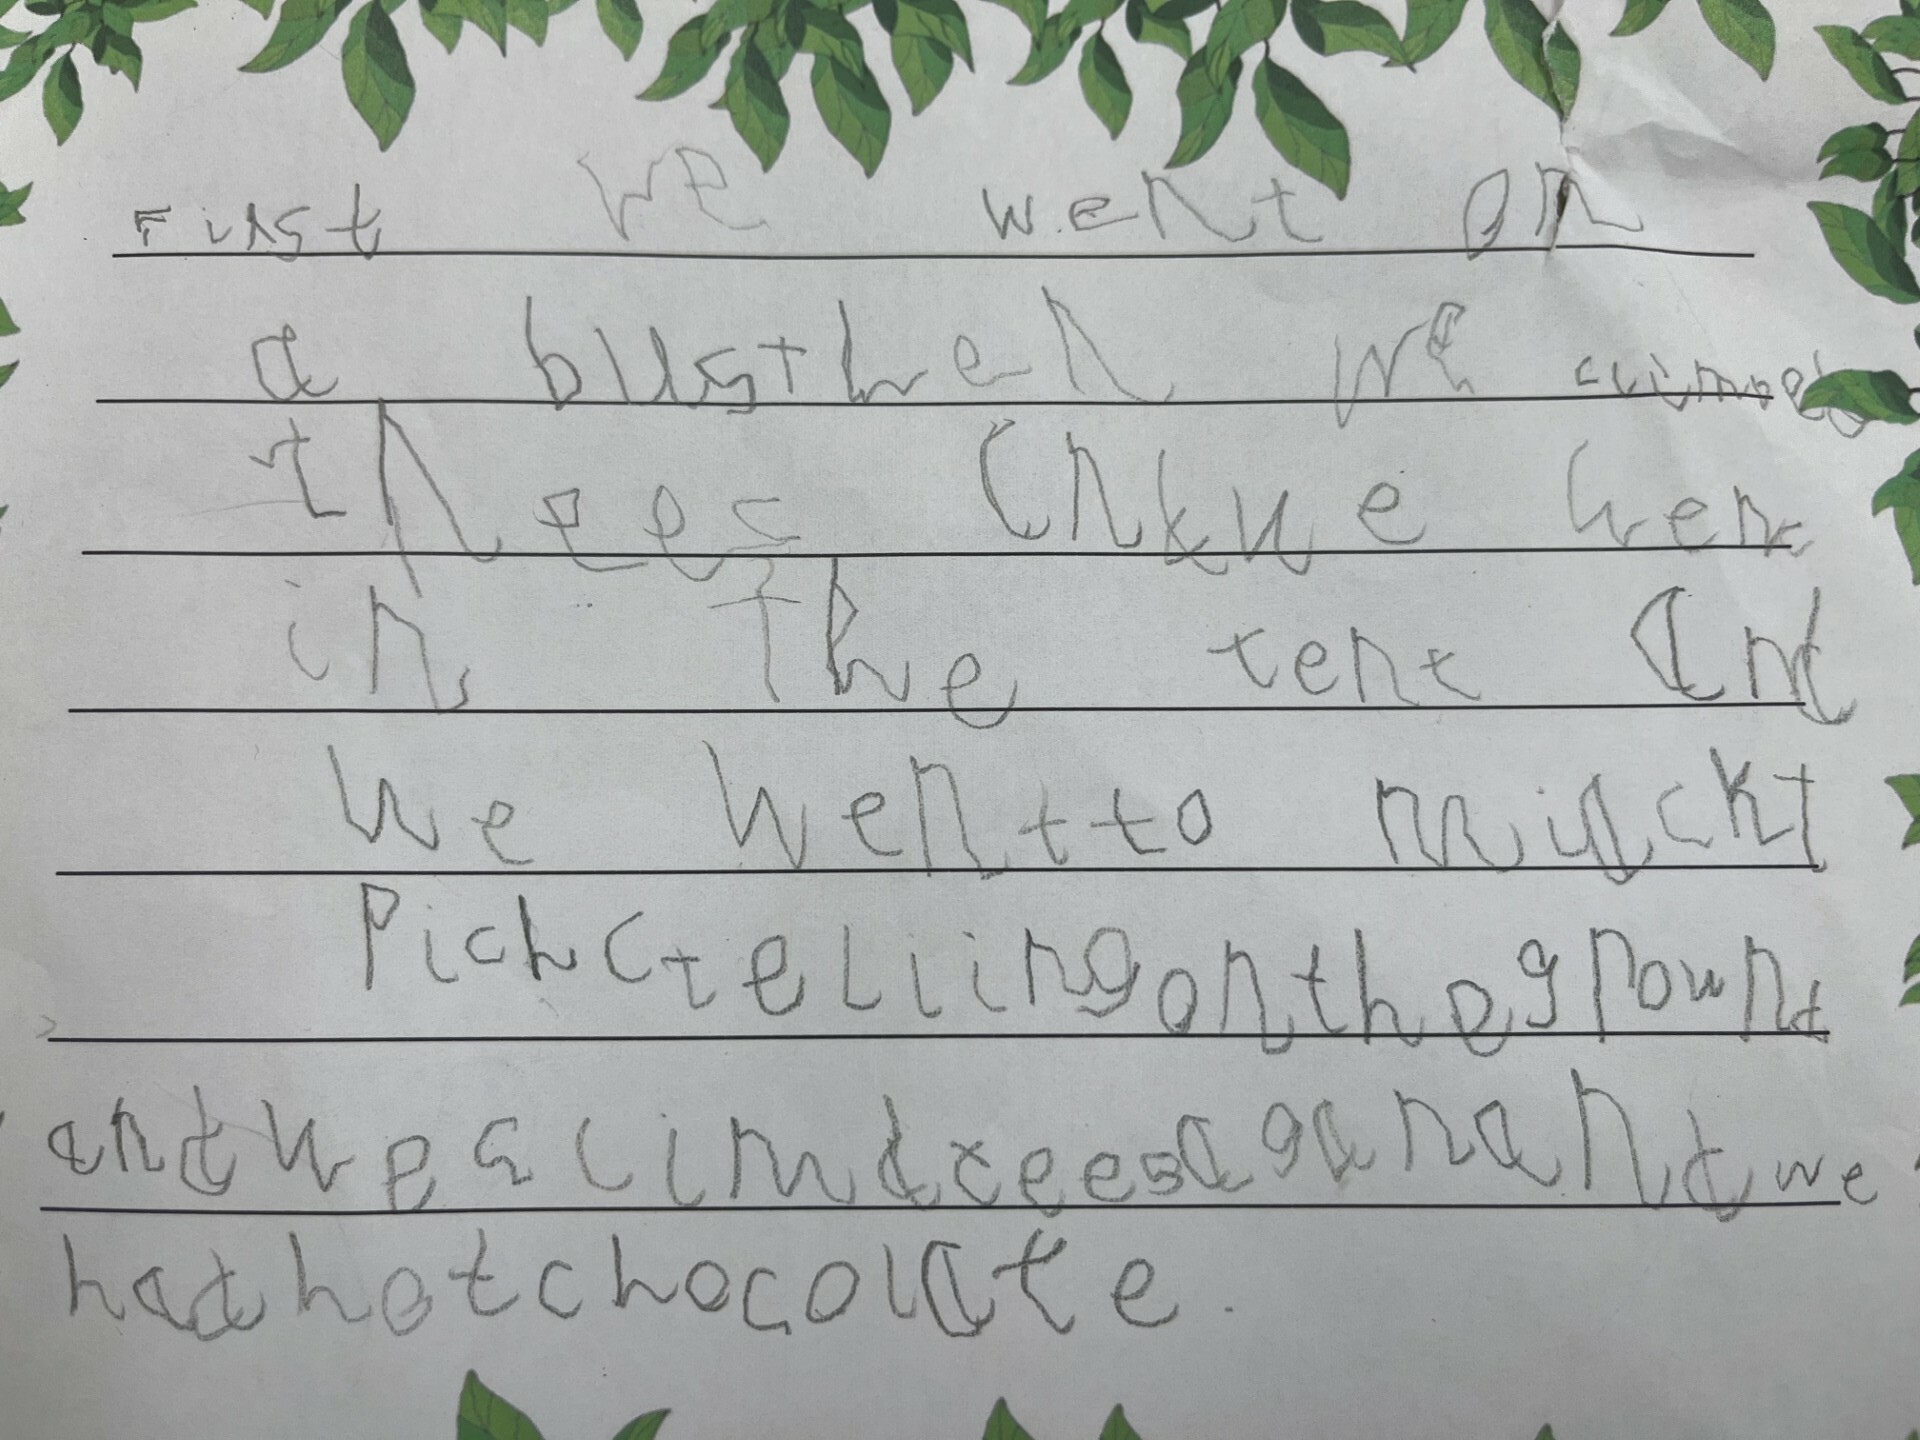 First we went on
a busthen we climed
thees Inkwe wen
in the tent and
we wentto miuckt
Pich cteliing onthe grownd
andwe aclimd treesaganand we
hadhotchocolate.